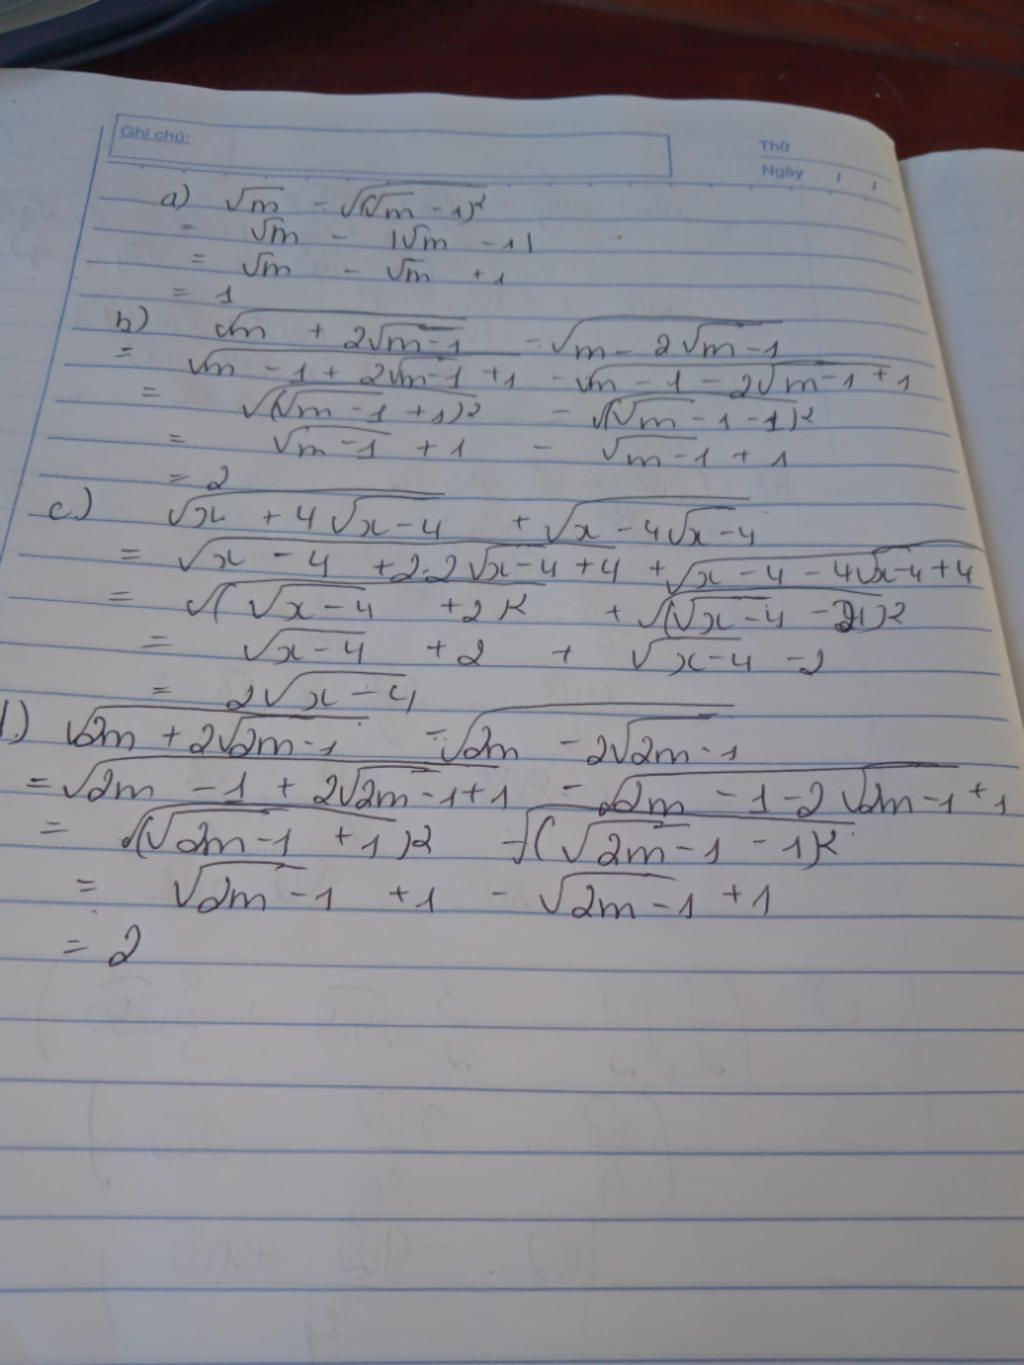 Ghi chú:
Thứ
Ngày / /
a) √m - √(√m - 1)²
= √m - |√m - 1|
= √m - √m + 1
= 1
b) √m + 2√m-1 - √m - 2√m-1
= √m - 1 + 2√m-1 + 1 - √m - 1 - 2√m-1 + 1
= √(√m-1 + 1)² - √(√m-1 - 1)²
= √m-1 + 1 - √m-1 + 1
= 2
c) √x + 4√x-4 + √x - 4√x-4
= √x - 4 + 2.2√x-4 + 4 + √x - 4 - 4√x-4 + 4
= √(√x-4 + 2)² + √(√x-4 - 2)²
= √x-4 + 2 + √x-4 - 2
= 2√x-4
d) √2m + 2√2m-1 - √2m - 2√2m-1
= √2m - 1 + 2√2m-1 + 1 - √2m - 1 - 2√2m-1 + 1
= √(√2m-1 + 1)² - √(√2m-1 - 1)²
= √2m-1 + 1 - √2m-1 + 1
= 2